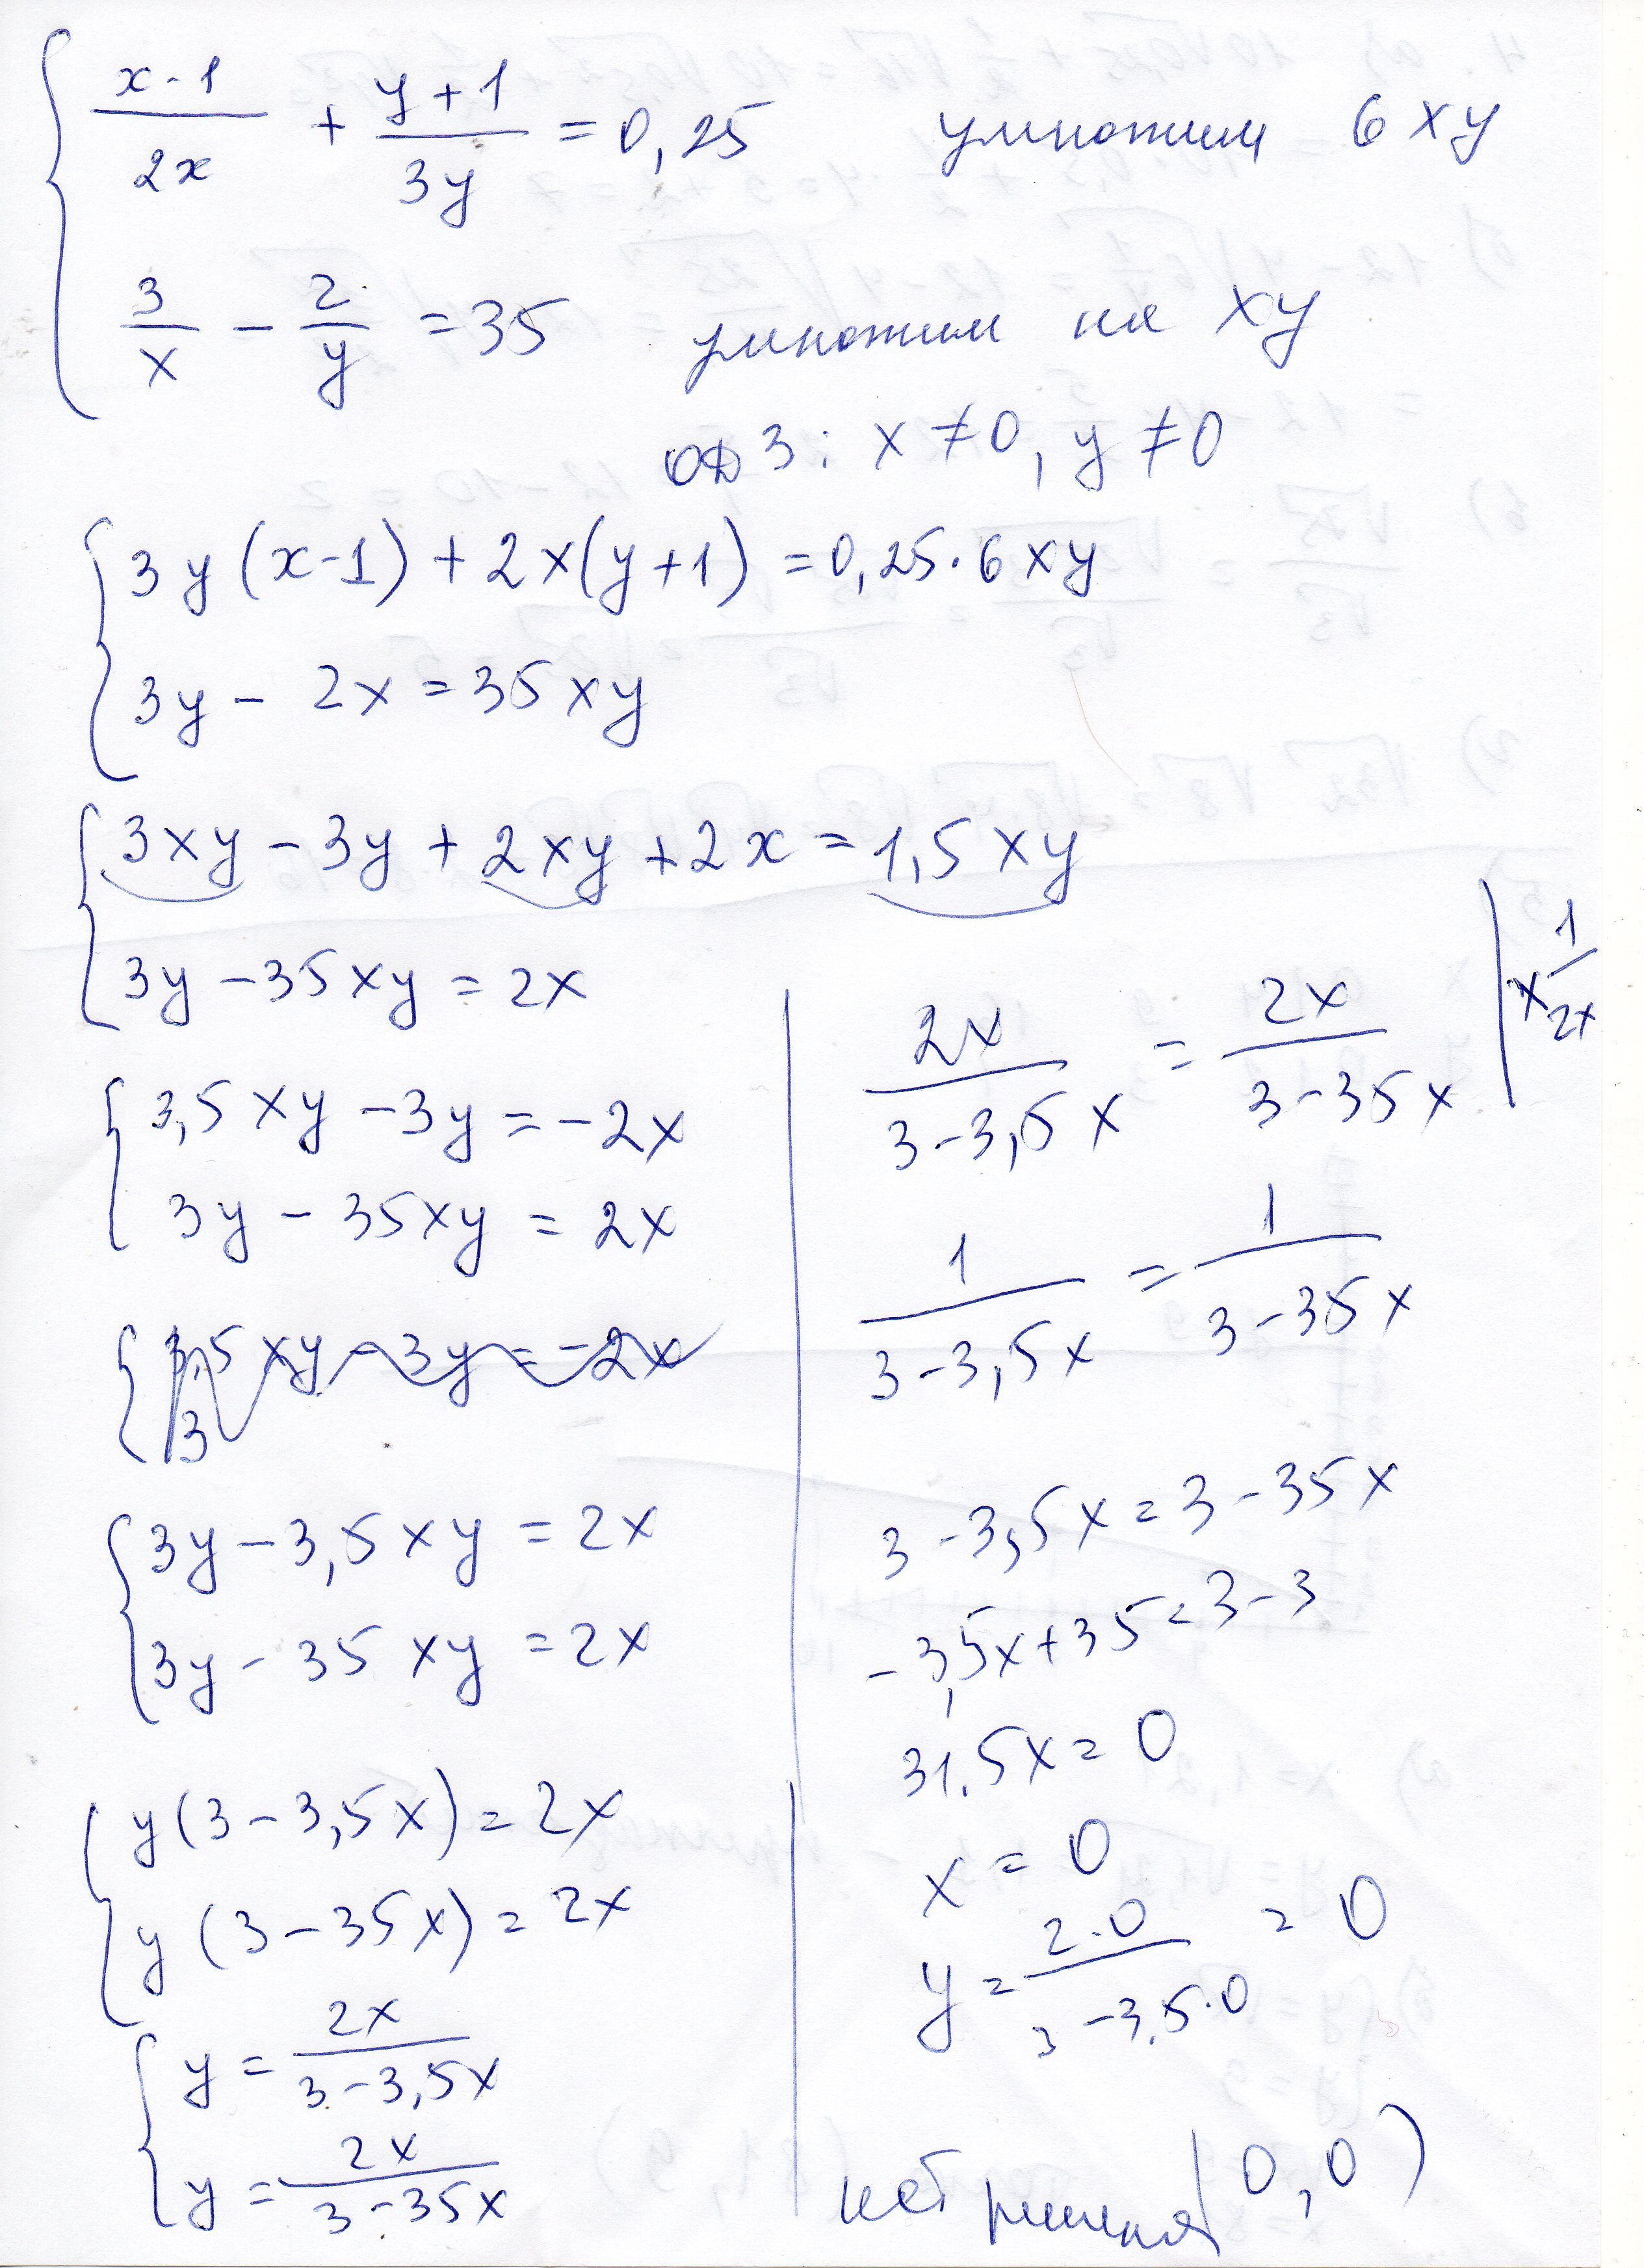 { (x-1)/(2x) + (y+1)/(3y) = 0,25 умножим 6xy
3/x - 2/y = 35 умножим на xy
ОДЗ: x ≠ 0, y ≠ 0
{ 3y(x-1) + 2x(y+1) = 0,25·6xy
3y - 2x = 35xy
{ 3xy - 3y + 2xy + 2x = 1,5xy
3y - 35xy = 2x
{ 3,5xy - 3y = -2x
3y - 35xy = 2x
{ 3,5xy - 3y = -2x
3
{ 3y - 3,5xy = 2x
3y - 35xy = 2x
{ y(3 - 3,5x) = 2x
y(3 - 35x) = 2x
{ y = 2x/(3 - 3,5x)
y = 2x/(3 - 35x)
2x/(3 - 3,5x) = 2x/(3 - 35x) | x 1/2x
1/(3 - 3,5x) = 1/(3 - 35x)
3 - 3,5x = 3 - 35x
-3,5x + 35 = 3 - 3
31,5x = 0
x = 0
y = 2·0/(3 - 3,5·0) = 0
нет решения (0,0)